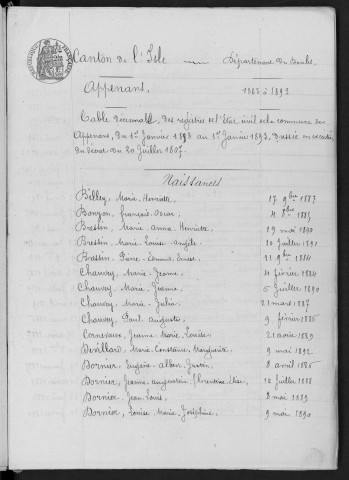 Canton de l'Isle Département du Doubs
Appenans. 1883 à 1892
Table Décennale, des registres de l'état civil de la commune des
Appenans, du 1er Janvier 1883 au 1er Janvier 1893, dressée en exécution
du décret du 20 Juillet 1807.
Naissances
Billey, Marie-Henriette 17 9bre 1887
Bonjon, François-Oscar 1885
Bresson, Marie Anna-Henriette 19 mai 1890
Bresson, Marie-Louise-Angèle 20 Juillet 1891
Bresson, Pierre-Edmond-Ernest 21 9bre 1884
Chauvey, Marie-Jeanne 4 février 1884
Chauvey, Marie-Jeanne 5 Juillet 1890
Chauvey, Marie-Julia 21 mars 1887
Chauvey, Paul-Auguste 9 février 1886
Cornevaux, Jeanne-Marie-Louise 21 avril 1889
Dévillard, Marie-Constance-Marguerite 9 mai 1892
Dornier, Eugène-Albert-Justin 8 avril 1886
Dornier, Jeanne-Augustine-Florentine-Elise 12 Juillet 1888
Dornier, Jean-Louis 2 mai 1889
Dornier, Louise-Marie-Joséphine 9 mai 1890